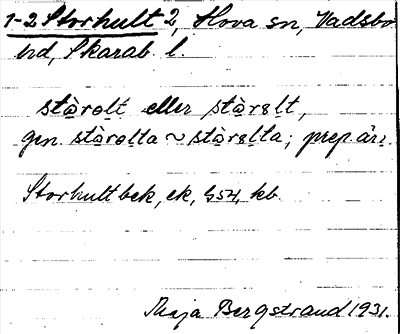 1-2 Storhult 2, Hova sn, Vadsbo
hd, Skarab. l.
stòrəlt eller stòrɵlt,
gen. stòrəlta ~ stòrɵlta; prep är.
Storhult bek, ek, G54, kb.
Maja Bergstrand 1931.